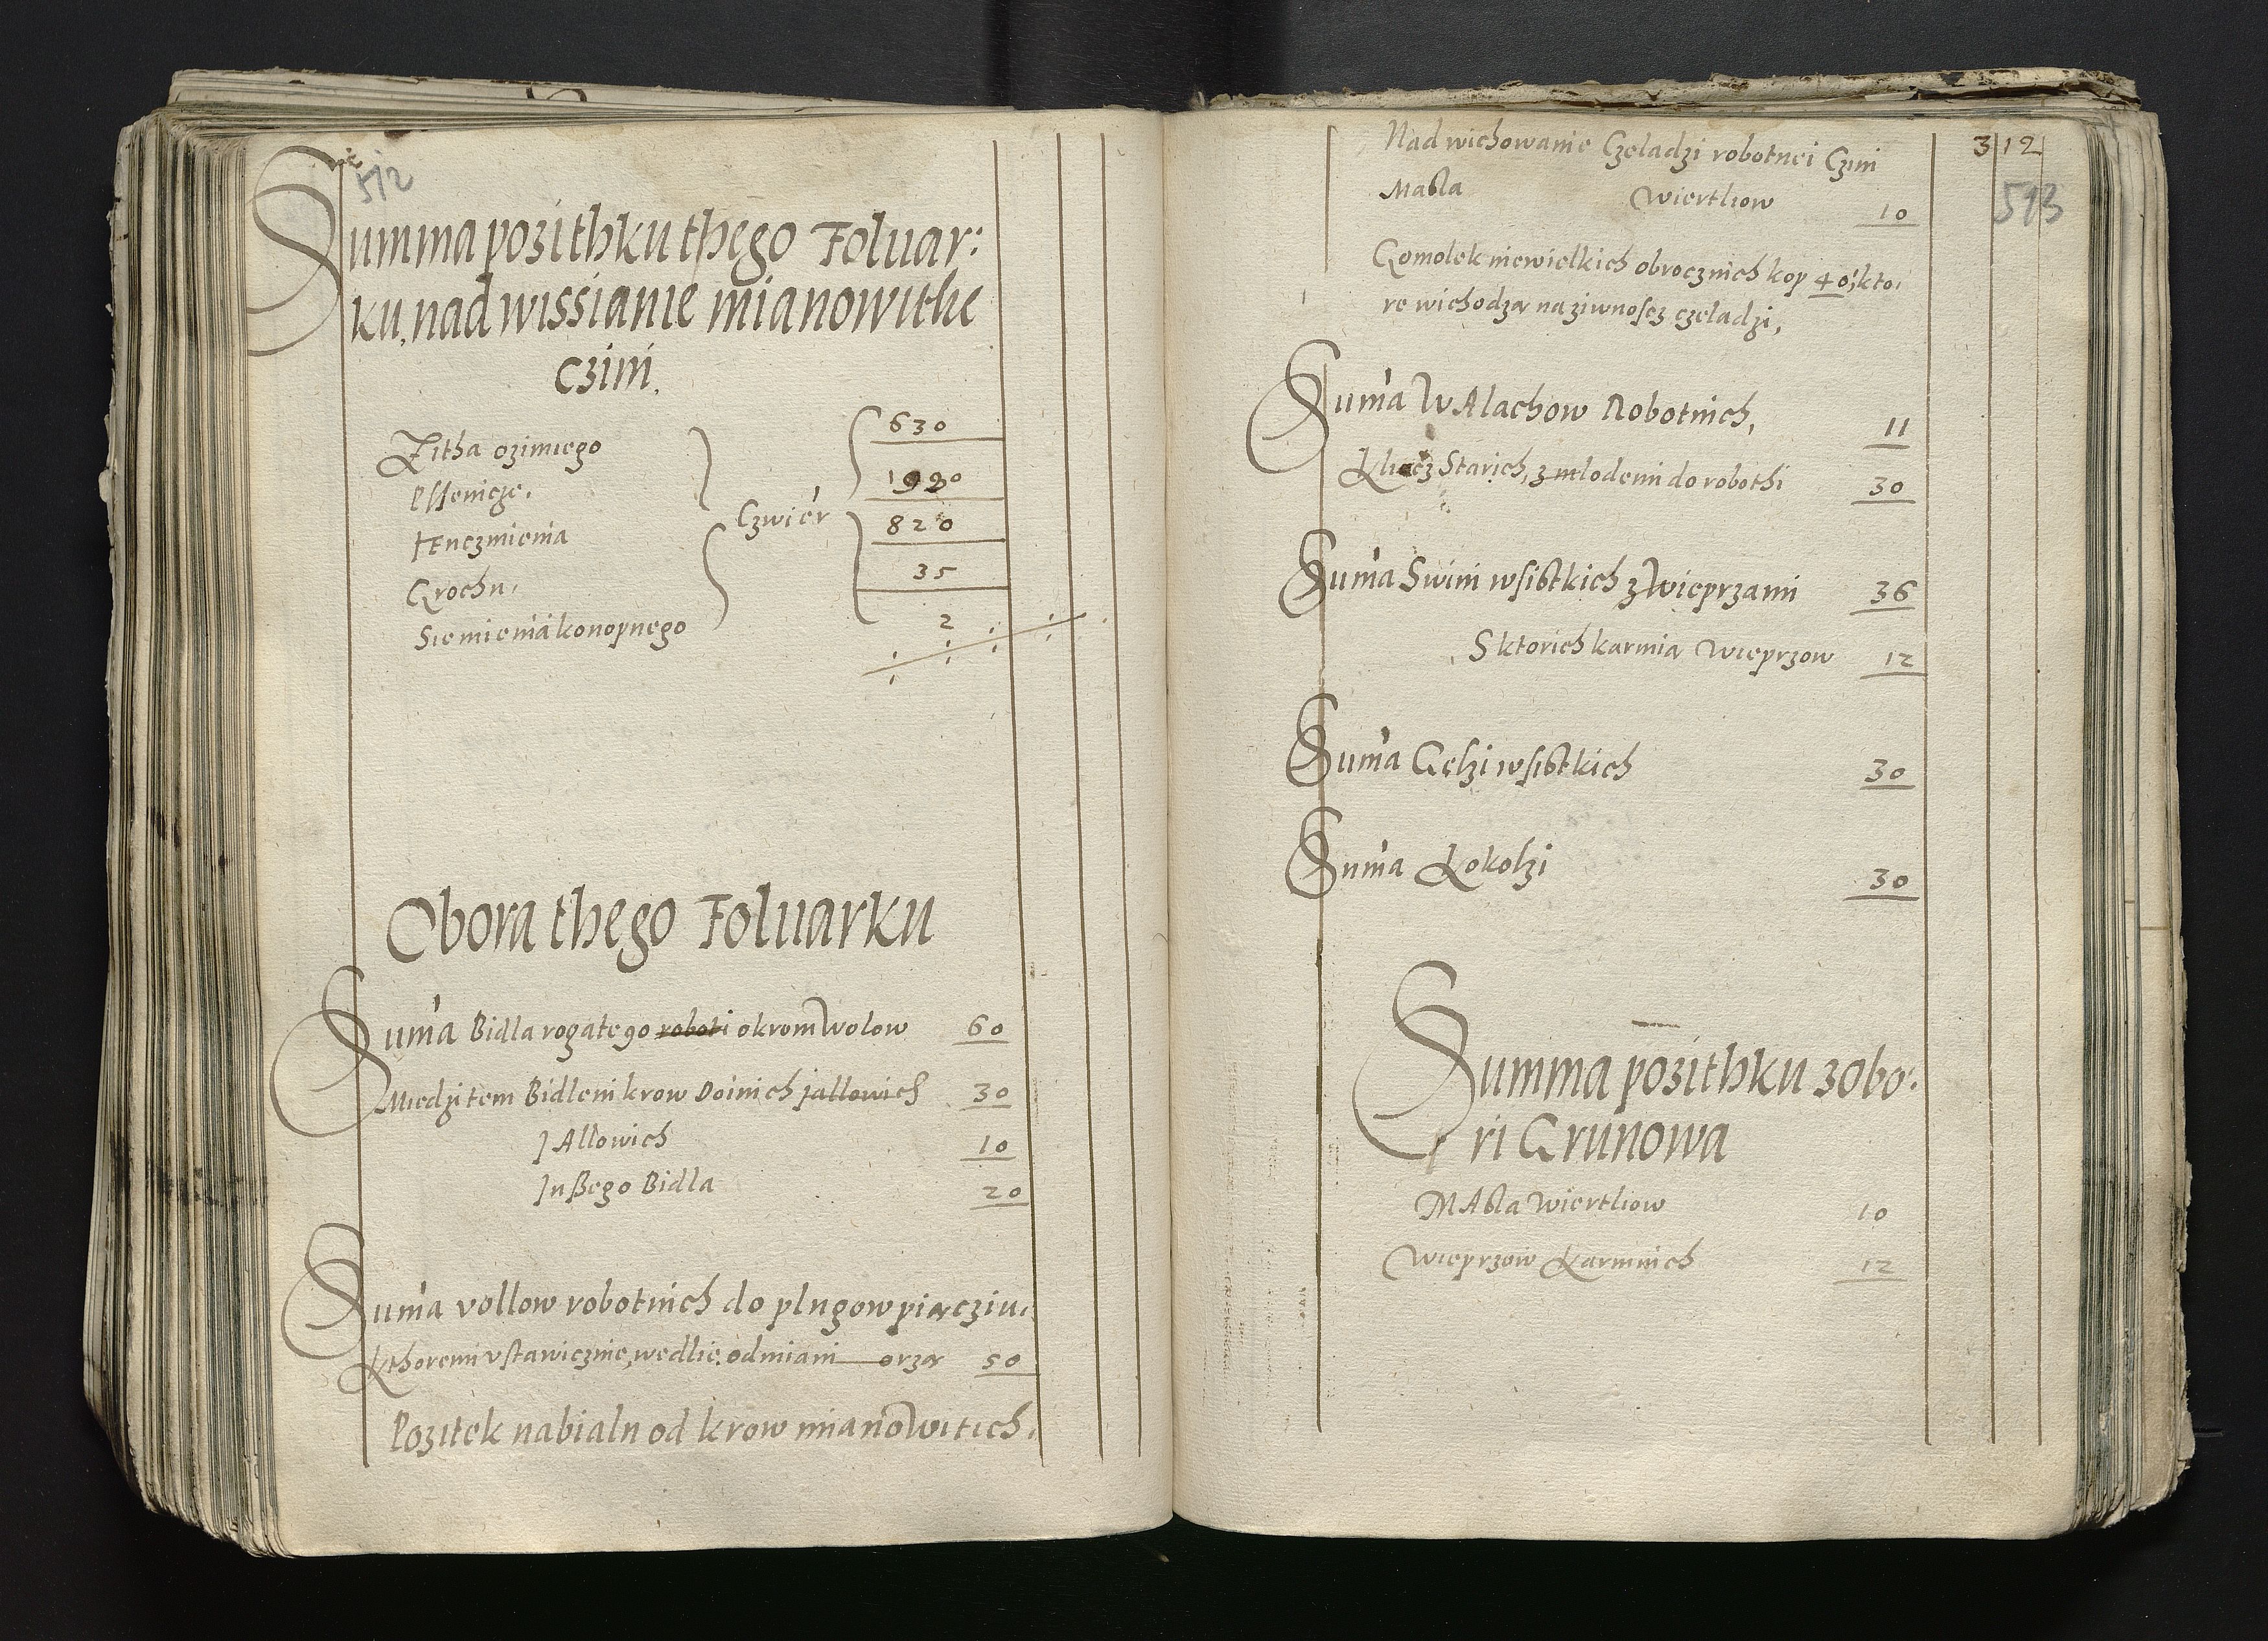 512
Summa pozithku thego Foluar:
ku, nad wissianie mianowithe
czini.
Zitha ozimiego 630
Pssenicze. 1920
Jęnczmienia Czwier 820
Grochu, 35
Siemienia konopnego 2
Obora thego Foluarku
Suma Bidla rogatego roboti okrom Wolow 60
Miedzi tem Bidlem krow Doinich jallowich 30
JAllowich 10
Inßego Bidla 20
Suma vollow robotnich do plugow piąciu,
Kthoremi vstawicznie, wedlie odmiani orzą 50
Pozitek nabialu od krow mianowitich.
312
513
Nad wichowanie Czeladzi robotnei Czini
Masla Wiertliow 10
Gomolek niewielkich obrocznich kop 40, kto:
re wichodzą na ziwnoscz czeladzi,
Suma WAlachow Robotnich, 11
Kliacz Starich, z mlodemi do robothi 30
Suma Swini wsistkich z Wieprzami 36
S ktorich karmią Wieprzow 12
Suma Gęszi wsistkich 30
Suma Kokoszi 30
Summa pozithku z obo:
ri Grunowa
MAsla Wiertliow 10
Wieprzow Karmnich 12